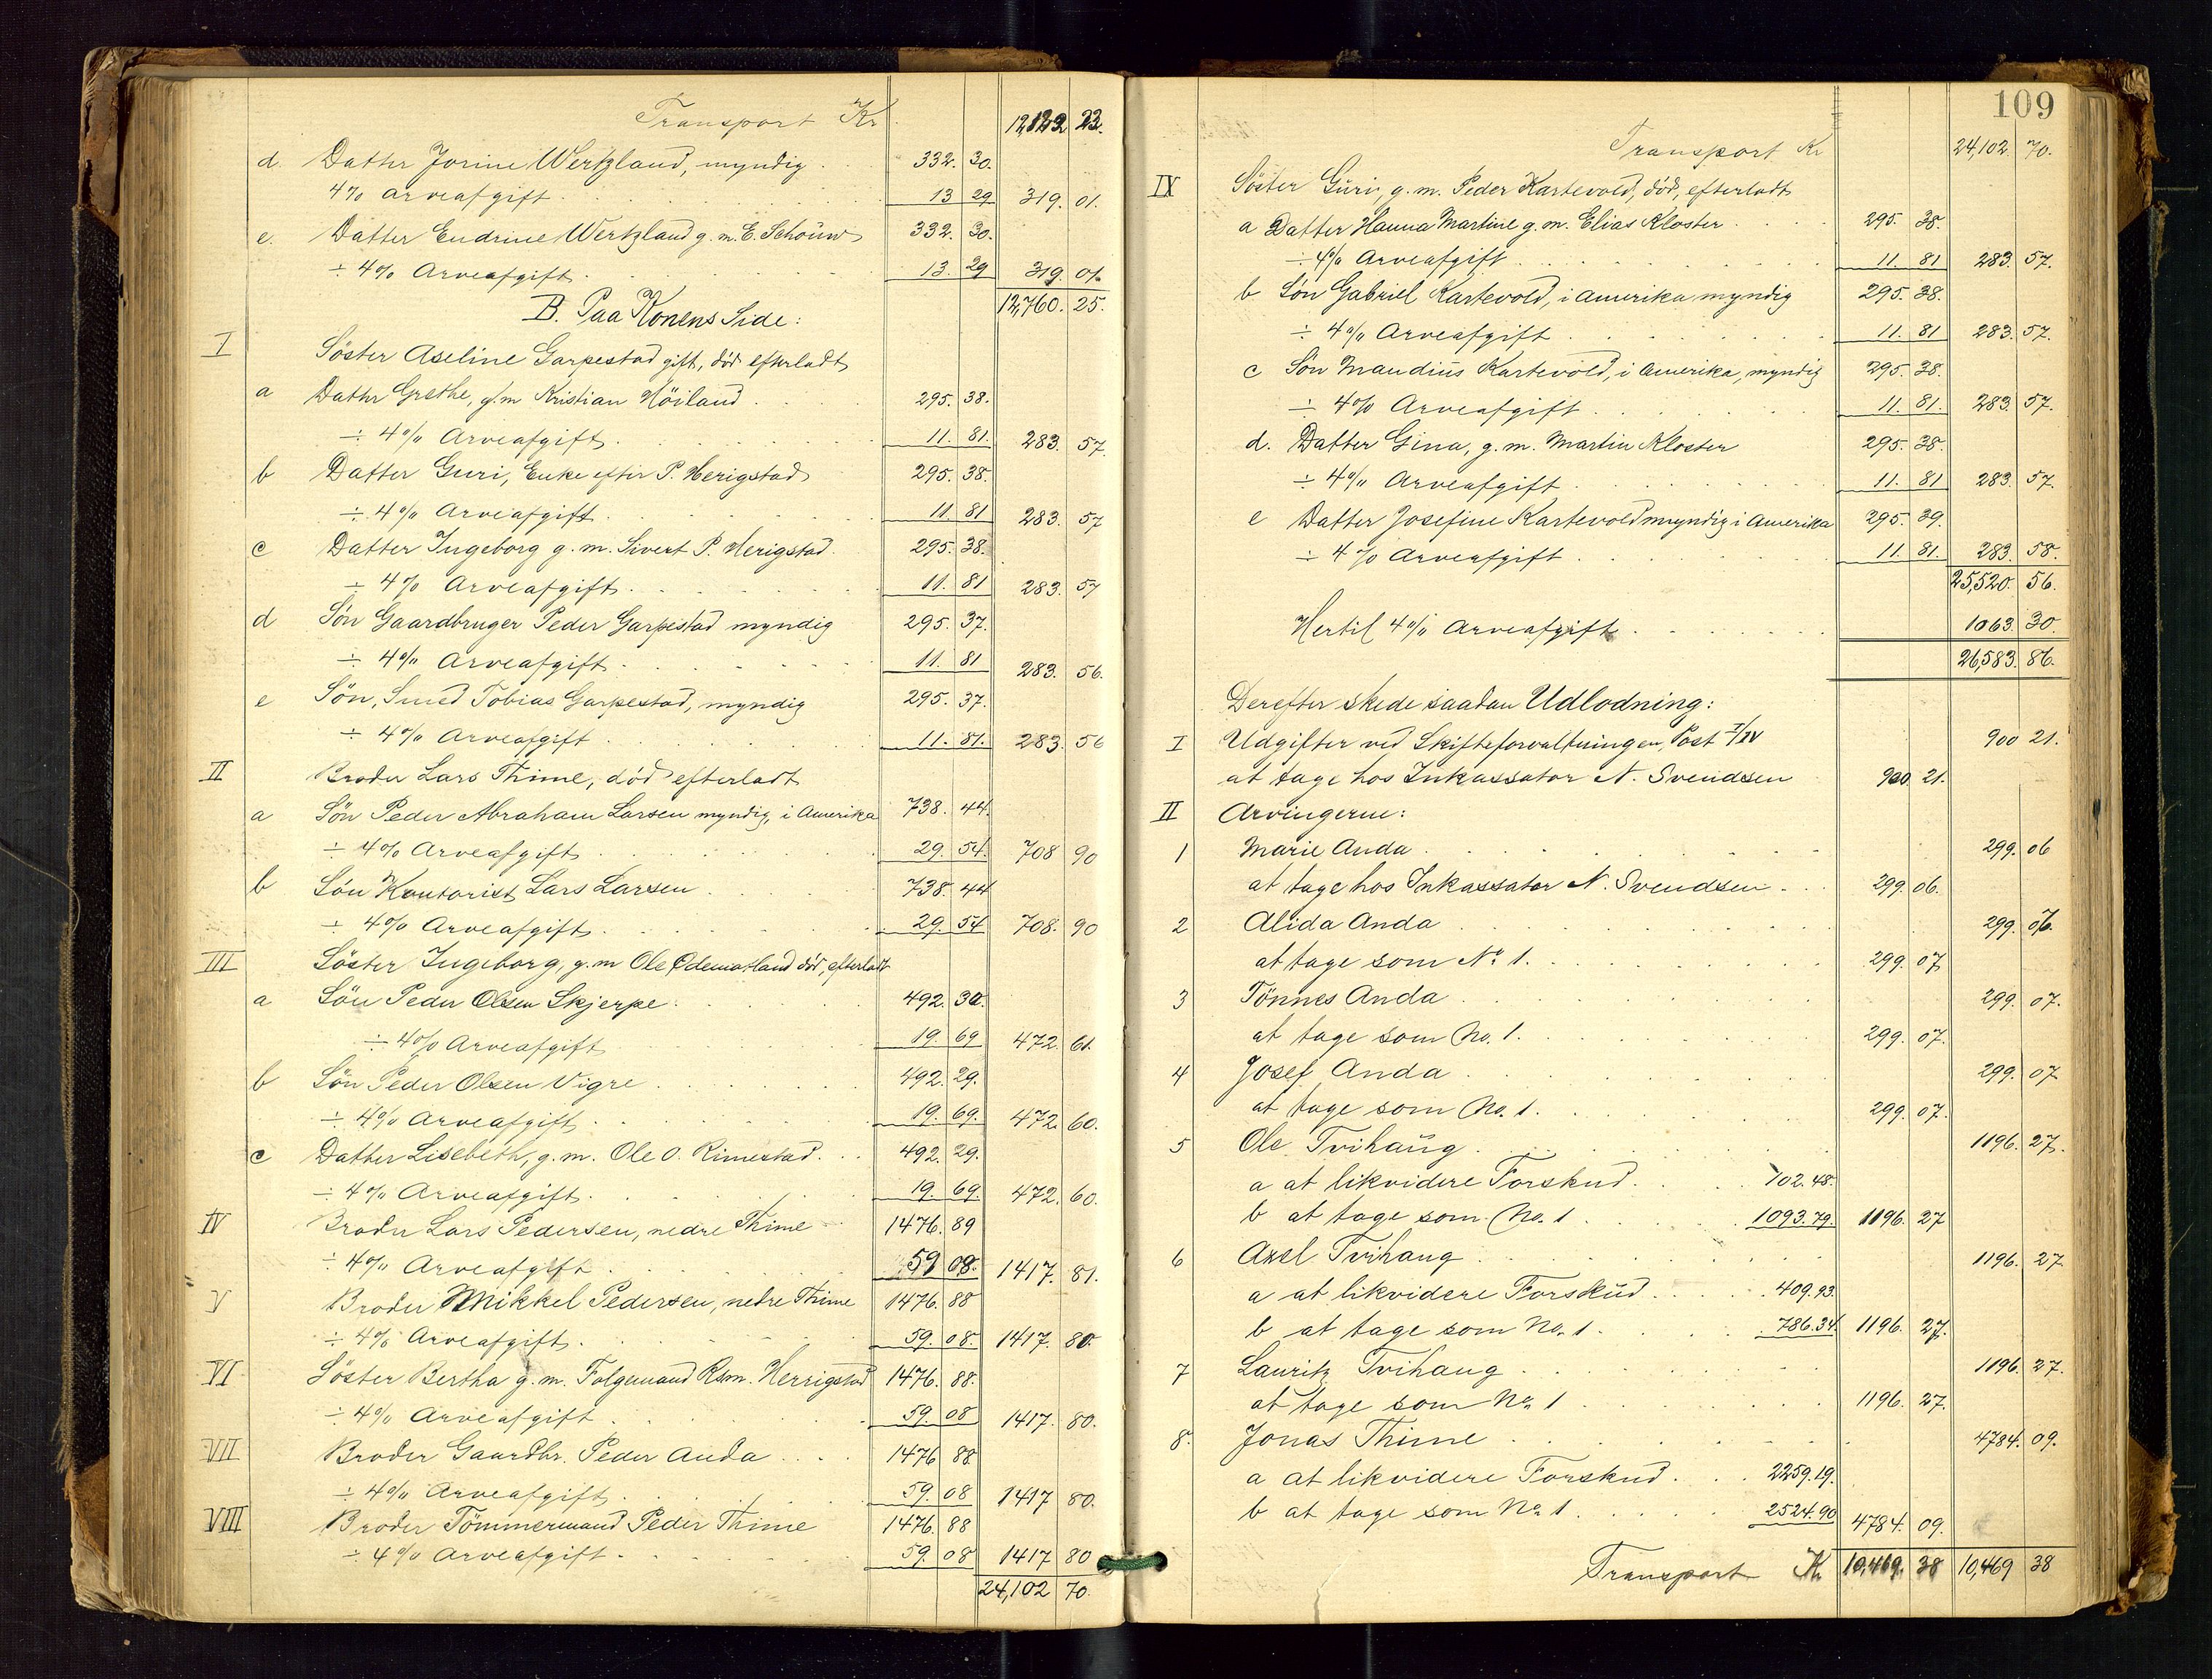 Transport Kr 12,122. 23.
d. Datter Jorine Wertzland, myndig 332. 30.
4% arveafgift 13 29 319. 01.
e. Datter Endrine Wertzland g. m. E. Schouw 332. 30.
÷ 4% Arveafgift 13. 29 319. 01.
12,760. 25.
B. Paa Konens Side:
I Söster Aseline Garpestad gift, död efterladt
a Datter Grethe, g. m Kristian Höiland 295. 38.
÷ 4% Arveafgift 11. 81. 283. 57.
b Datter Guri, Enke efter P. Herigstad 295. 38.
÷ 4% Arveafgift 11. 81 283. 57
c Datter Ingeborg g. m. Sivert P. Herigstad 295. 38.
÷ 4% Arveafgift 11. 81 283. 57
d Sön Gaardbruger Peder Garpestad myndig 295. 37.
÷ 4% Arveafgift 11. 81 283. 56.
e Sön, Smed Tobias Garpestad, myndig 295. 37.
÷ 4% Arveafgift 11. 81. 283. 56
II Broder Lars Thime, död efterladt
a Sön Peder Abraham Larsen myndig, i Amerika 738. 44.
÷ 4% Arveafgift 29. 54. 708 90
b Sön Kontorist Lars Larsen 738. 44
÷ 4% Arveafgift 29. 54 708. 90
III Söster Ingeborg, g. m Ole Ødemotland död, efterladt
a Sön Peder Olsen Skjerpe 492. 30.
÷ 4% Arveafgift 19. 69 472. 61.
b Sön Peder Olsen Vigre 492. 29.
÷ 4% Arveafgift 19. 69. 472. 60.
c Datter Lisebeth, g. m. Ole O. Rimestad 492. 29.
÷ 4% Arveafgift 19. 69. 472. 60.
IV Broder Lars Pedersen, nedre Thime 1476. 89
÷ 4% Arveafgift 59 08. 1417. 81.
V Broder Mikkel Pedersen, nedre Thime 1476. 88
÷ 4% Arveafgift 59. 08. 1417. 80.
VI Söster Bertha g. m. Folgemand Rsm. Herrigstad 1476. 88.
÷ 4% Arveafgift 59. 08 1417. 80.
VII Broder Gaardbr. Peder Anda 1476 88
÷ 4% Arveafgift 59. 08 1417 80.
VIII Broder Tömmermand Peder Thime 1476. 88
÷ 4% Arveafgift 59. 08 1417 80
24,102 70.
109
Transport Kr 24,102. 70.
IX Söster Guri, g. m. Peder Kartevold, död, efterladt
a Datter Hanna Martine g. m. Elias Kloster 295. 38.
÷ 4% Arveafgift 11. 81 283. 57.
b Sön Gabriel Kartevold, i Amerika myndig 295. 38.
÷ 4% Arveafgift 11. 81 283. 57.
c Sön Maudius Kartevold, i Amerika, myndig 295. 38.
÷ 4% Arveafgift 11. 81. 283. 57.
d. Datter Gina, g. m. Martin Kloster 295. 38.
÷ 4% Arveafgift 11. 81 283. 57.
e Datter Josefine Kartevold myndig i Amerika 295. 39.
÷ 4% Arveafgift 11. 81. 283. 58.
25,520. 56.
Hertil 4% Arveafgift 1063. 30.
26,583. 86.
Derefter skede saadan Udlodning:
I Udgifter ved Skifteforvaltningen, Post I/IV 900 21.
at tage hos Inkassator N. Svendsen 900. 21.
II Arvingerne:
1 Marie Anda 299. 06
at tage hos Inkassator N. Svendsen 299. 06.
2 Alida Anda 299. 07.
at tage som No 1. 299. 07
3 Tönnes Anda 299. 07.
at tage som No. 1. 299. 07.
4 Josef Anda 299. 07
at tage som No. 1. 299. 07.
5 Ole Tvihaug 1196. 27.
a at likvidere Forskud 102.48.
b at tage som No. 1 1093.79. 1196. 27
6 Axel Tvihaug 1196. 27
a at likvidere Forskud 409.93.
b at tage som No. 1 786.34. 1196. 27.
7 Lauritz Tvihaug 1196. 27.
at tage som No 1 1196. 27.
8. Jonas Thime 4784. 09.
a at likvidere Forskud 2259.19.
b at tage som No 1 2524.90 4784. 09.
Transport Kr 10,469. 38 10,469 38